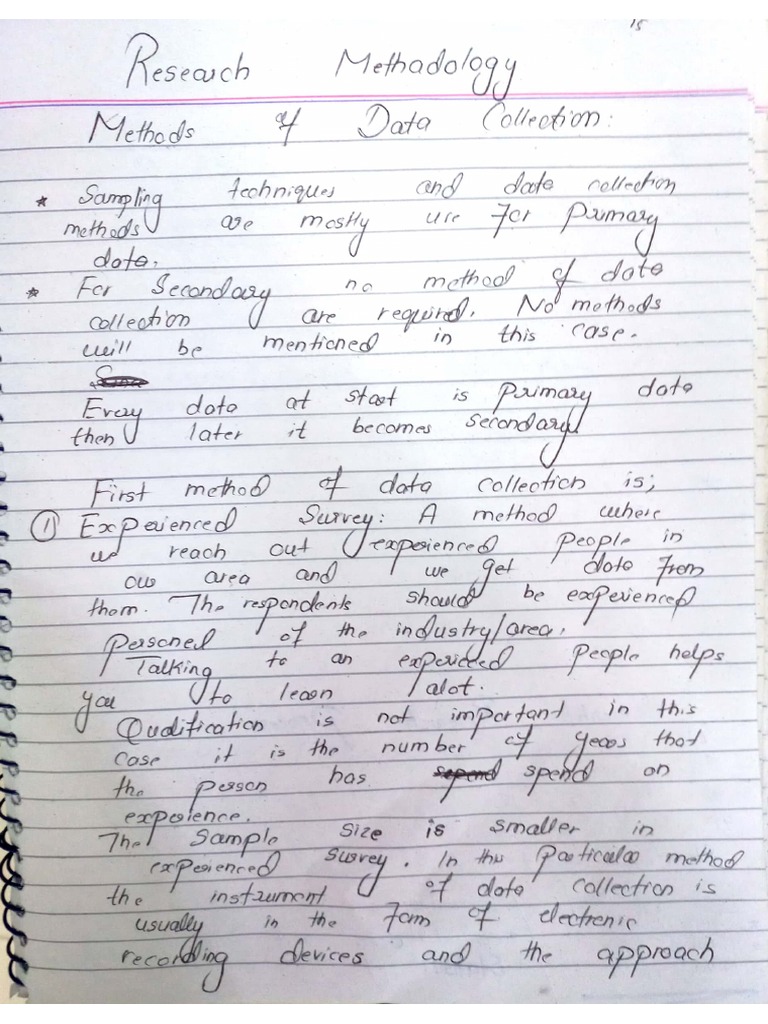 15
Research Methadology
Methods of Data Collection:
* Sampling techniques and data collection
methods are mostly use for primary
data.
* For Secondary no method of data
collection are required. No methods
will be mentioned in this case.
Every data at start is primary data
then later it becomes secondary.
First method of data collection is;
① Experienced Survey: A method where
we reach out experienced people in
our area and we get data from
them. The respondents should be experienced
personel of the industry/area.
Talking to an experieced people helps
you to learn alot.
Qualification is not important in this
case it is the number of years that
the person has spend on
experience.
The Sample size is smaller in
experienced survey. In this particular method
the instrument of data collection is
usually in the form of electronic
recording devices and the approach